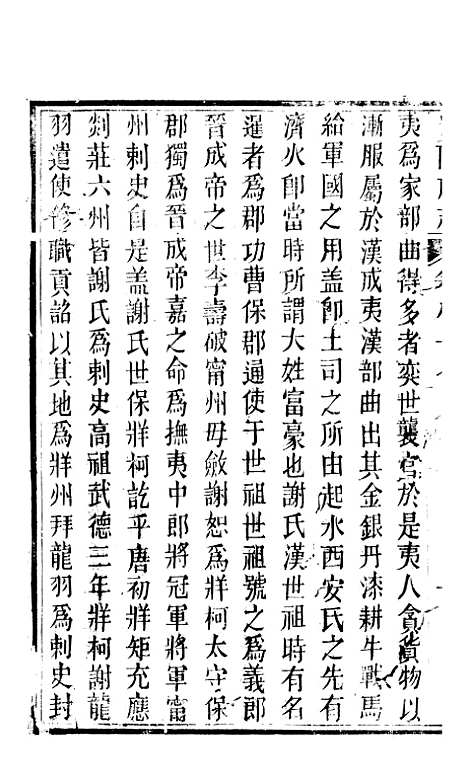 夷爲家部曲得多者奕世襲官於是夷人貪貨物以
漸服屬於漢成夷漢部曲出其金銀丹漆耕牛戰馬
給軍國之用盖卽土司之所由起水西安氏之先有
濟火卽當時所謂大姓富豪也謝氏漢世祖時有名
暹者爲郡功曹保郡遁使于世祖世祖號之爲義郎
晉成帝之世李壽破甯州毋斂謝恕爲牂柯太守保
郡獨爲晉成帝嘉之命爲撫夷中郎將冠軍將軍甯
州刺史自是盖謝氏世保牂柯訖乎唐初牂矩充應
剡莊六州皆謝氏爲刺史高祖武德三年牂柯謝龍
羽遣使修職貢詔以其地爲牂州拜龍羽爲刺史封